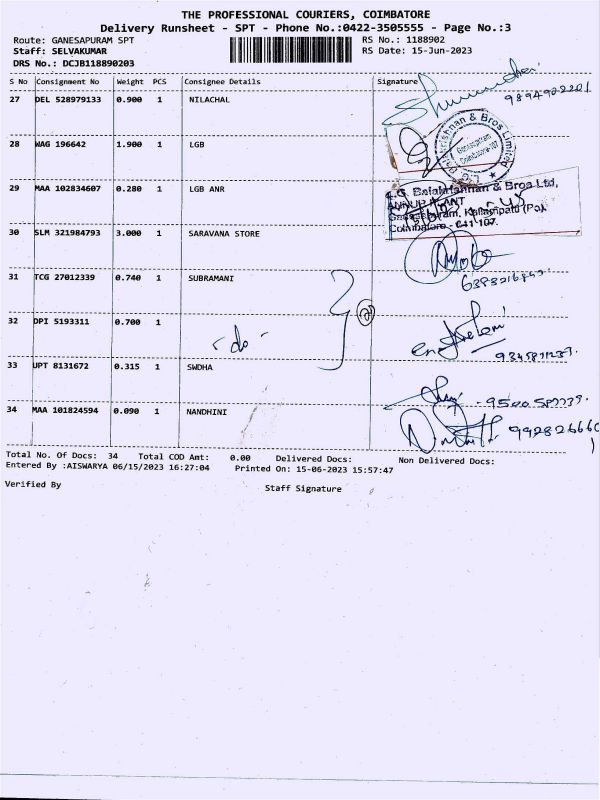 THE PROFESSIONAL COURIERS, COIMBATORE
Delivery Runsheet - SPT - Phone No.:0422-3505555 - Page No.:3
Route: GANESAPURAM SPT RS No.: 1188902
Staff: SELVAKUMAR RS Date: 15-Jun-2023
DRS No.: DCJB118890203
S No Consignment No Weight PCS Consignee Details Signature
27 DEL 528979133 0.900 1 NILACHAL
28 WAG 196642 1.900 1 LGB
29 MAA 102834607 0.280 1 LGB ANR
L.G. Balakrishnan & Bros Ltd,
Coimbatore - 641 107.
30 SLM 321984793 3.000 1 SARAVANA STORE
31 TCG 27012339 0.740 1 SUBRAMANI
32 DPI 5193311 0.700 1 - do -
33 UPT 8131672 0.315 1 SWDHA
34 MAA 101824594 0.090 1 NANDHINI
Total No. Of Docs: 34 Total COD Amt: 0.00 Delivered Docs: Non Delivered Docs:
Entered By :AISWARYA 06/15/2023 16:27:04 Printed On: 15-06-2023 15:57:47
Verified By Staff Signature